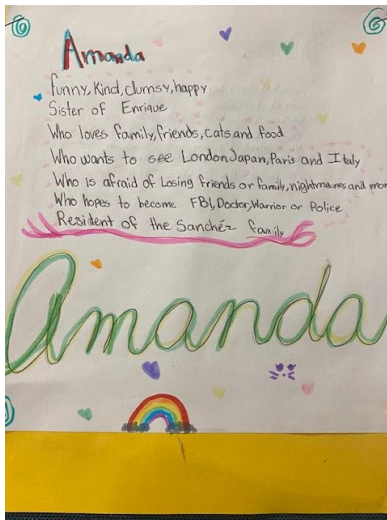 Amanda
funny, Kind, clumsy, happy
Sister of Enrique
Who loves family, friends, cats and food
Who wants to see London, Japan, Paris and Italy
Who is afraid of Losing friends or family, nightmares and mor
Who hopes to become FBI, Doctor, Warrior or Police
Resident of the Sanchéz family
Amanda